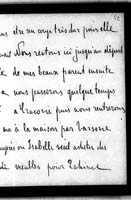 52
être un coup très dur pour elle
Nous restons ici jusqu'au départ
de mes beaux parents ensuite
nous passerons quelque temps
à Cracovie puis nous rentrerons
à la maison par Varsovie
ou Isabelle veut acheter des
meubles pour